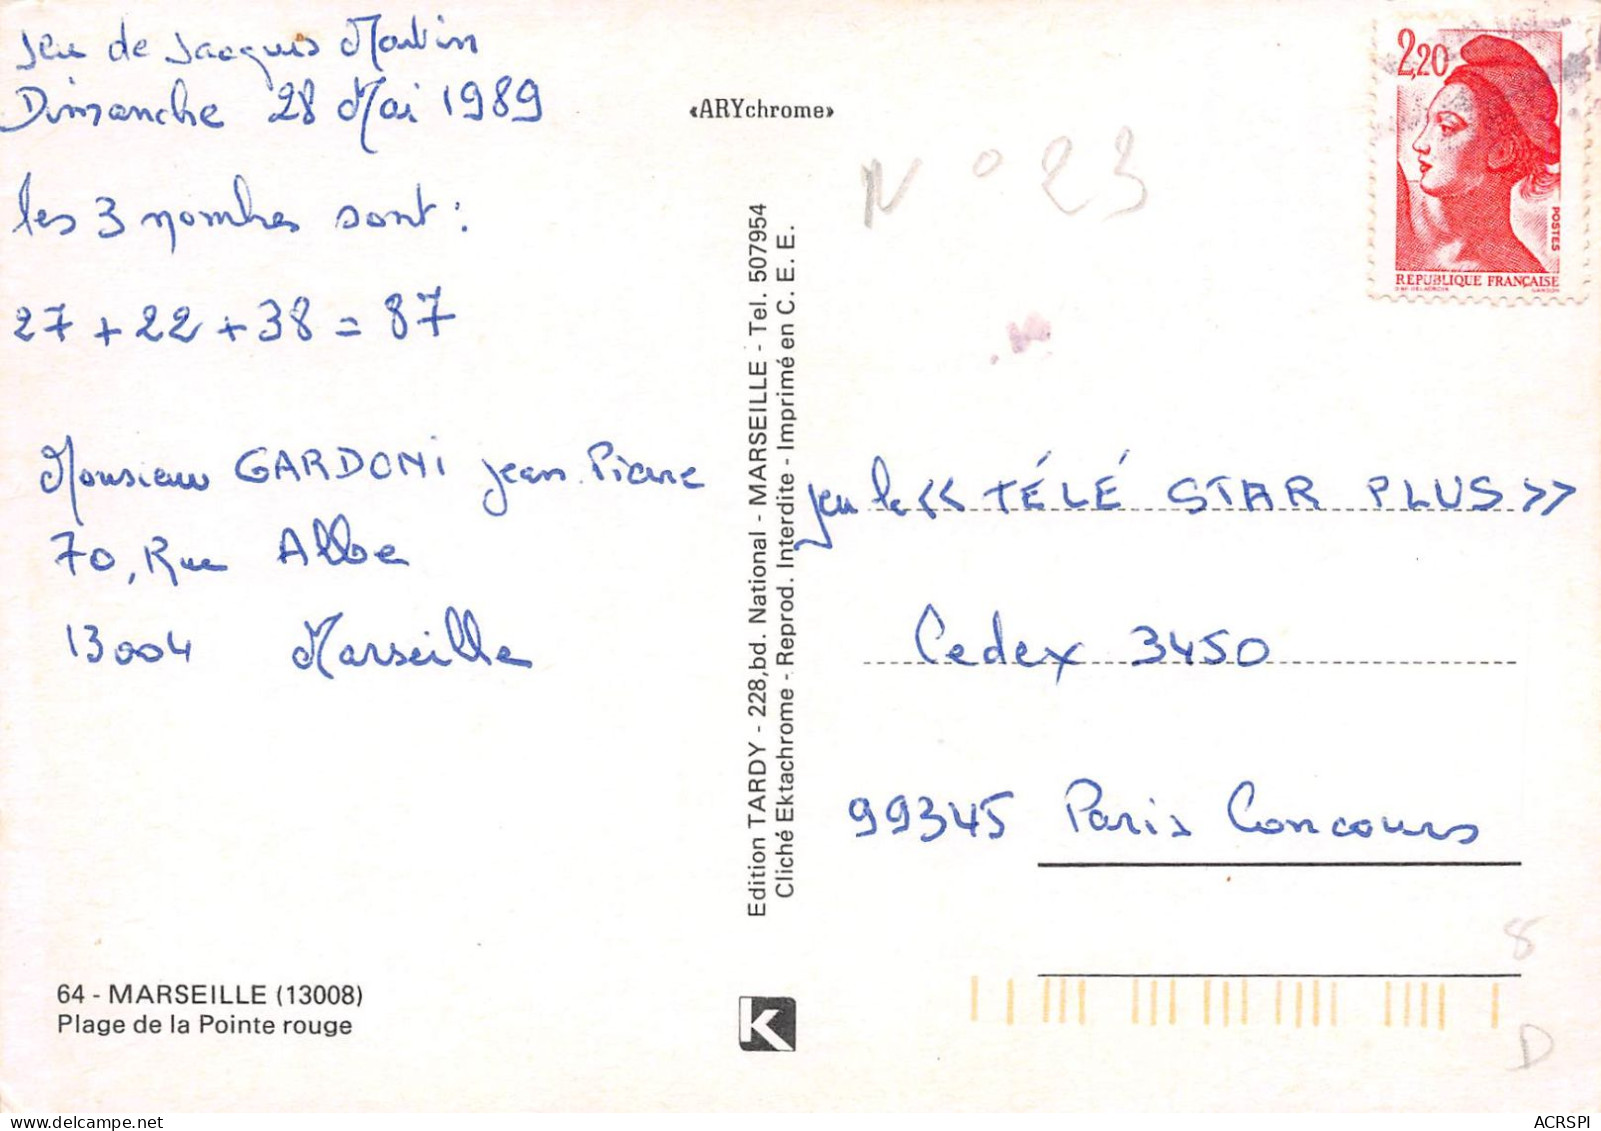 Jeu de Jacques Martin
Dimanche 28 Mai 1989
les 3 nombres sont :
27 + 22 + 38 = 87
Monsieur GARDONI Jean-Pierre
70, Rue Albe
13004 Marseille
64 - MARSEILLE (13008)
Plage de la Pointe rouge
«ARYchrome»
Edition TARDY - 228,bd. National - MARSEILLE - Tel. 507954
Cliché Ektachrome - Reprod. Interdite - Imprimé en C. E. E.
K
N° 23
2,20
POSTES
REPUBLIQUE FRANÇAISE
jeu le << TÉLÉ STAR PLUS >>
Cedex 3450
99345 Paris Concours
8
D
ACRSPI